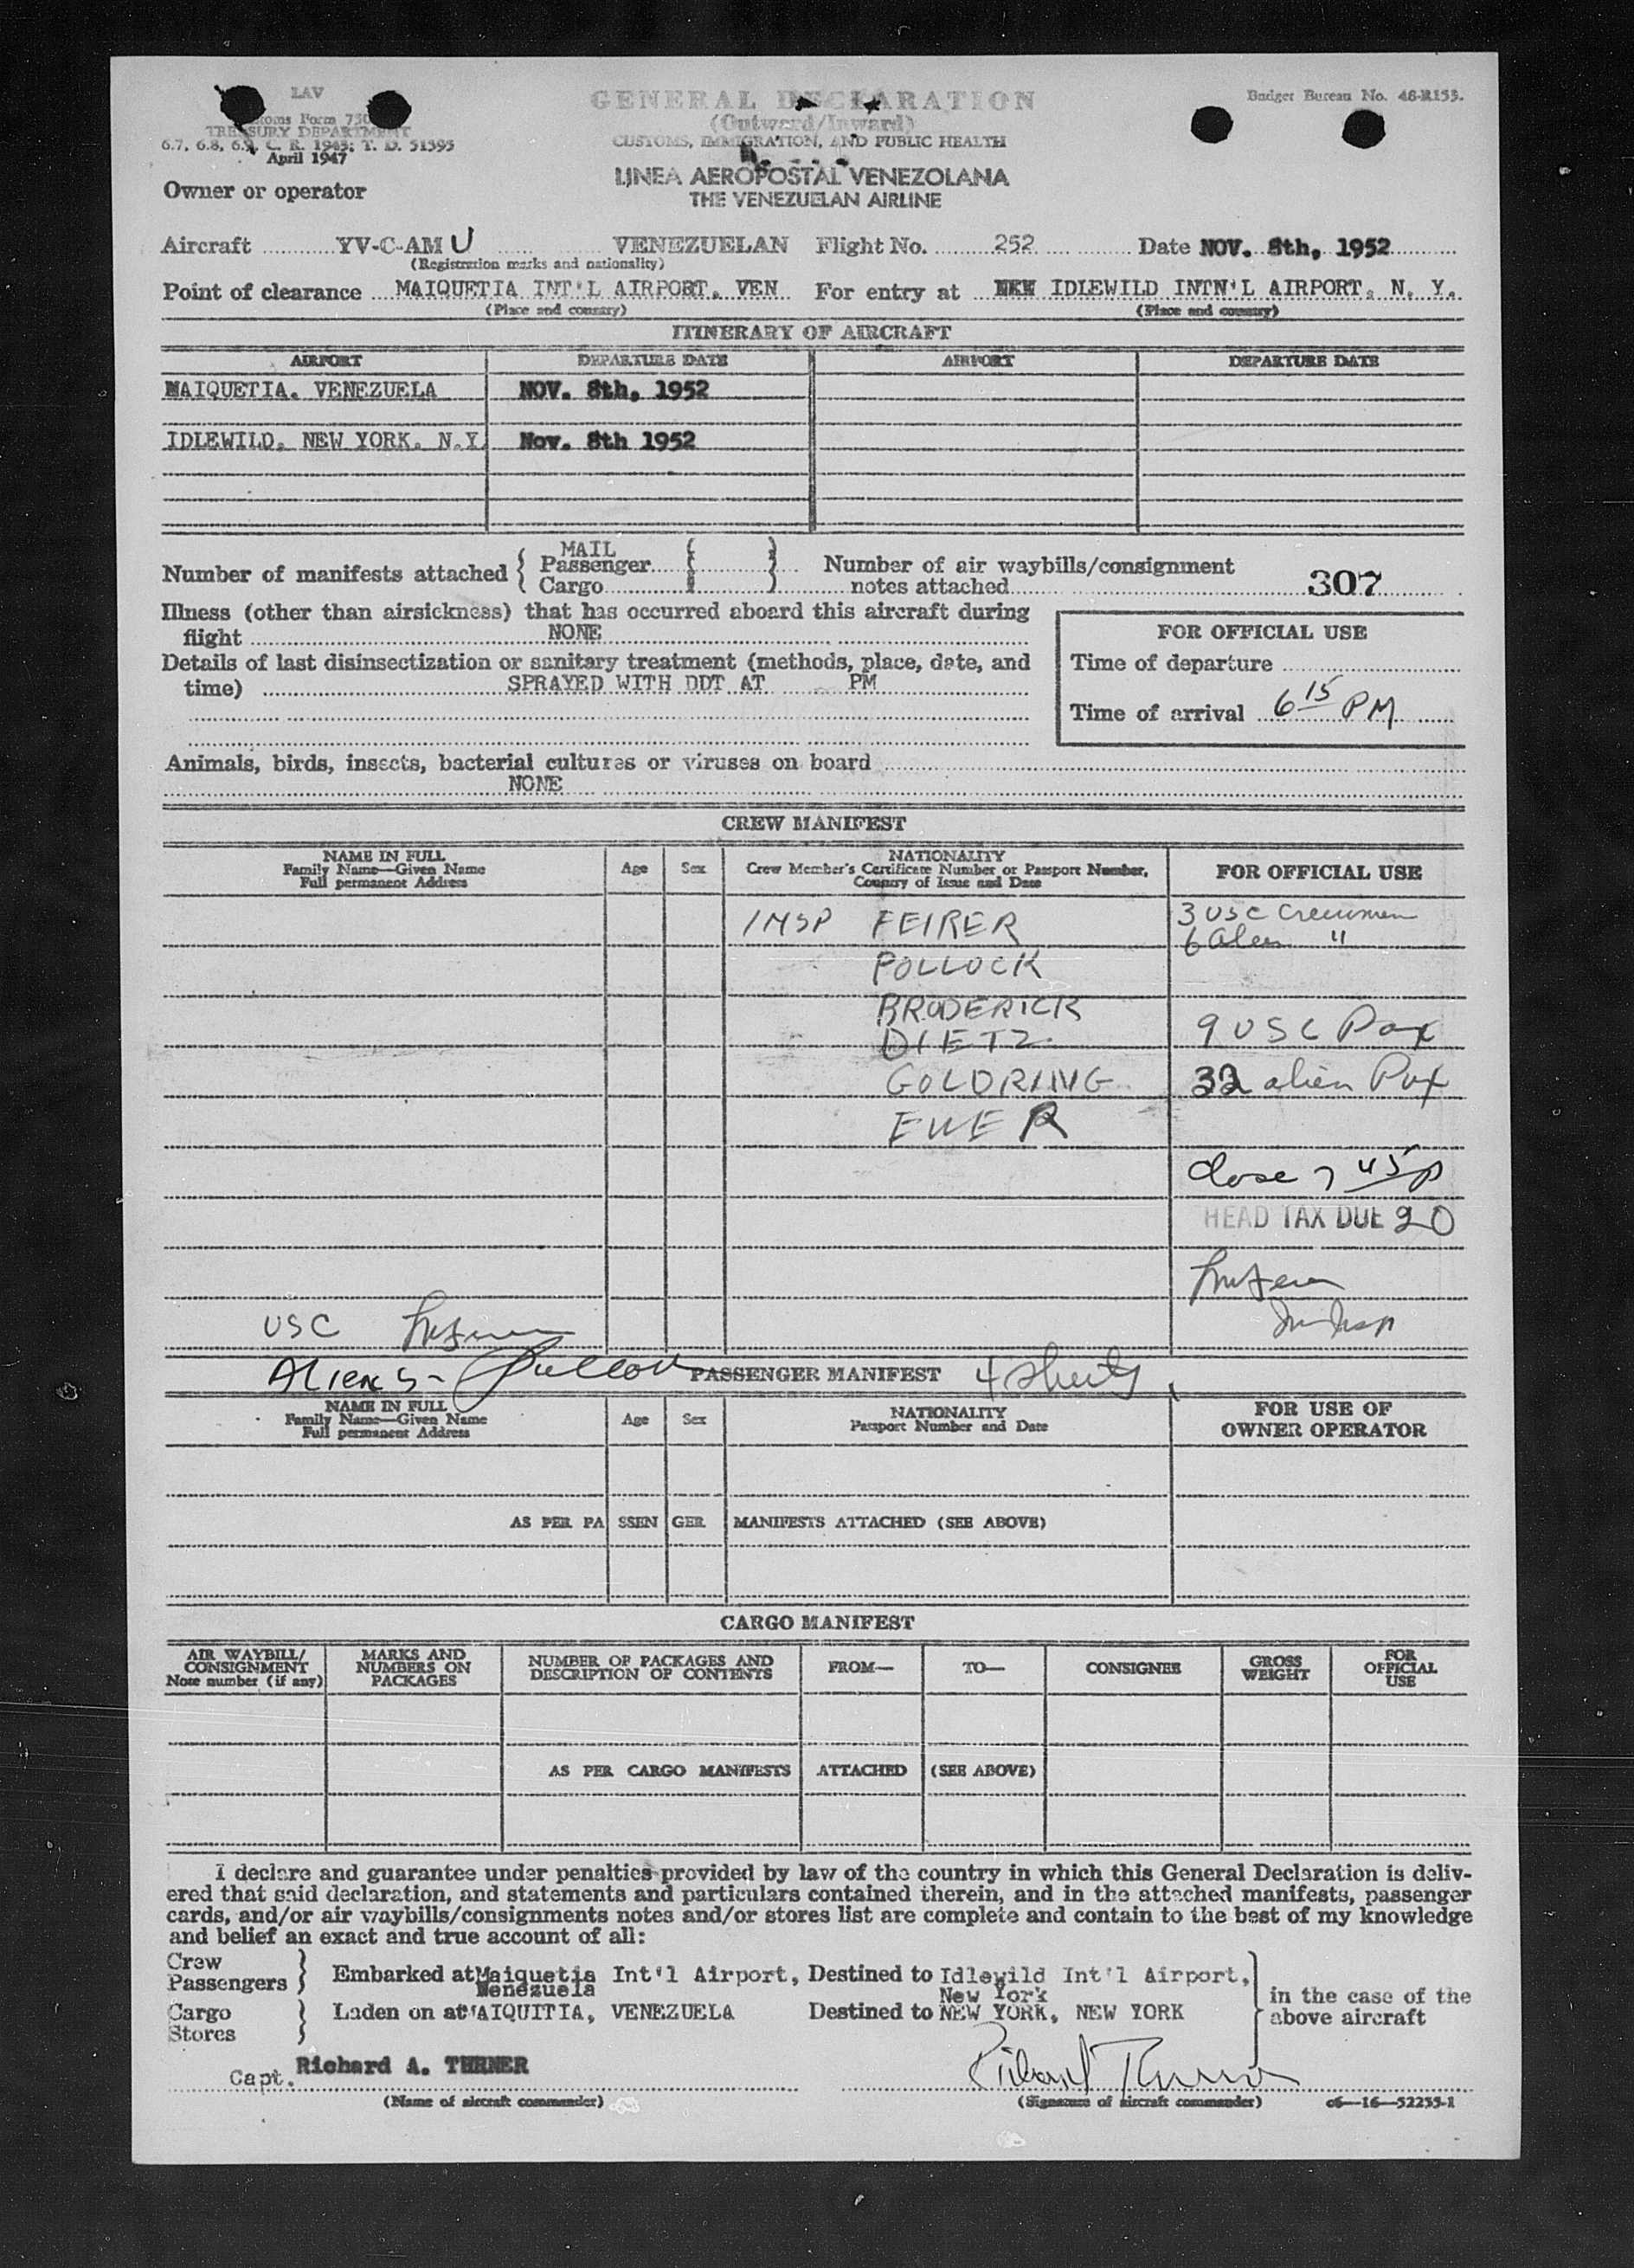 LAV
GENERAL DECLARATION
Budget Bureau No. 48-R153.
Customs Form 750
(Outward/Inward)
TREASURY DEPARTMENT
CUSTOMS, IMMIGRATION, AND PUBLIC HEALTH
6.7, 6.8, 6.9, C. R. 1943; T. D. 51595
April 1947
LINEA AEROPOSTAL VENEZOLANA
Owner or operator
THE VENEZUELAN AIRLINE
Aircraft YV-C-AM U VENEZUELAN Flight No. 252 Date NOV. 8th, 1952
(Registration marks and nationality)
Point of clearance MAIQUETIA INT'L AIRPORT. VEN For entry at IDLEWILD INTN'L AIRPORT, N. Y.
(Place and country) (Place and country)
ITINERARY OF AIRCRAFT
AIRPORT DEPARTURE DATE AIRPORT DEPARTURE DATE
MAIQUETIA. VENEZUELA NOV. 8th, 1952
IDLEWILD. NEW YORK. N.Y. Nov. 8th 1952
MAIL
Number of manifests attached { Passenger ( ) Number of air waybills/consignment
Cargo ( ) notes attached 307
Illness (other than airsickness) that has occurred aboard this aircraft during
flight NONE
FOR OFFICIAL USE
Details of last disinsectization or sanitary treatment (methods, place, date, and
Time of departure
time) SPRAYED WITH DDT AT PM
Time of arrival 6 15 PM
Animals, birds, insects, bacterial cultures or viruses on board
NONE
CREW MANIFEST
NAME IN FULL
Family Name—Given Name
Full permanent Address
Age Sex
NATIONALITY
Crew Member's Certificate Number or Passport Number,
Country of Issue and Date
FOR OFFICIAL USE
INSP FEIRER 3 USC Crewmen
6 Alien "
POLLOCK
BRODERICK
DIETZ 9 USC Pax
GOLDRING 32 alien Pax
EWER
Close 7 45 P
HEAD TAX DUE 20
USC
Aliens - Pollock
PASSENGER MANIFEST 4 sheets
NAME IN FULL
Family Name—Given Name
Full permanent Address
Age Sex
NATIONALITY
Passport Number and Date
FOR USE OF
OWNER OPERATOR
AS PER PASSENGER MANIFESTS ATTACHED (SEE ABOVE)
CARGO MANIFEST
AIR WAYBILL/
CONSIGNMENT
Note number (if any)
MARKS AND
NUMBERS ON
PACKAGES
NUMBER OF PACKAGES AND
DESCRIPTION OF CONTENTS
FROM— TO— CONSIGNEE
GROSS
WEIGHT
FOR
OFFICIAL
USE
AS PER CARGO MANIFESTS ATTACHED (SEE ABOVE)
I declare and guarantee under penalties provided by law of the country in which this General Declaration is deliv-
ered that said declaration, and statements and particulars contained therein, and in the attached manifests, passenger
cards, and/or air waybills/consignments notes and/or stores list are complete and contain to the best of my knowledge
and belief an exact and true account of all:
Crew
Passengers } Embarked at Maiquetia Int'l Airport, Destined to Idlewild Int'l Airport,
Venezuela New York
in the case of the
Cargo } Laden on at MAIQUITIA, VENEZUELA Destined to NEW YORK, NEW YORK
above aircraft
Stores
Capt. Richard A. TURNER
Richard Turner
(Name of aircraft commander) (Signature of aircraft commander) c6—16—52255-1